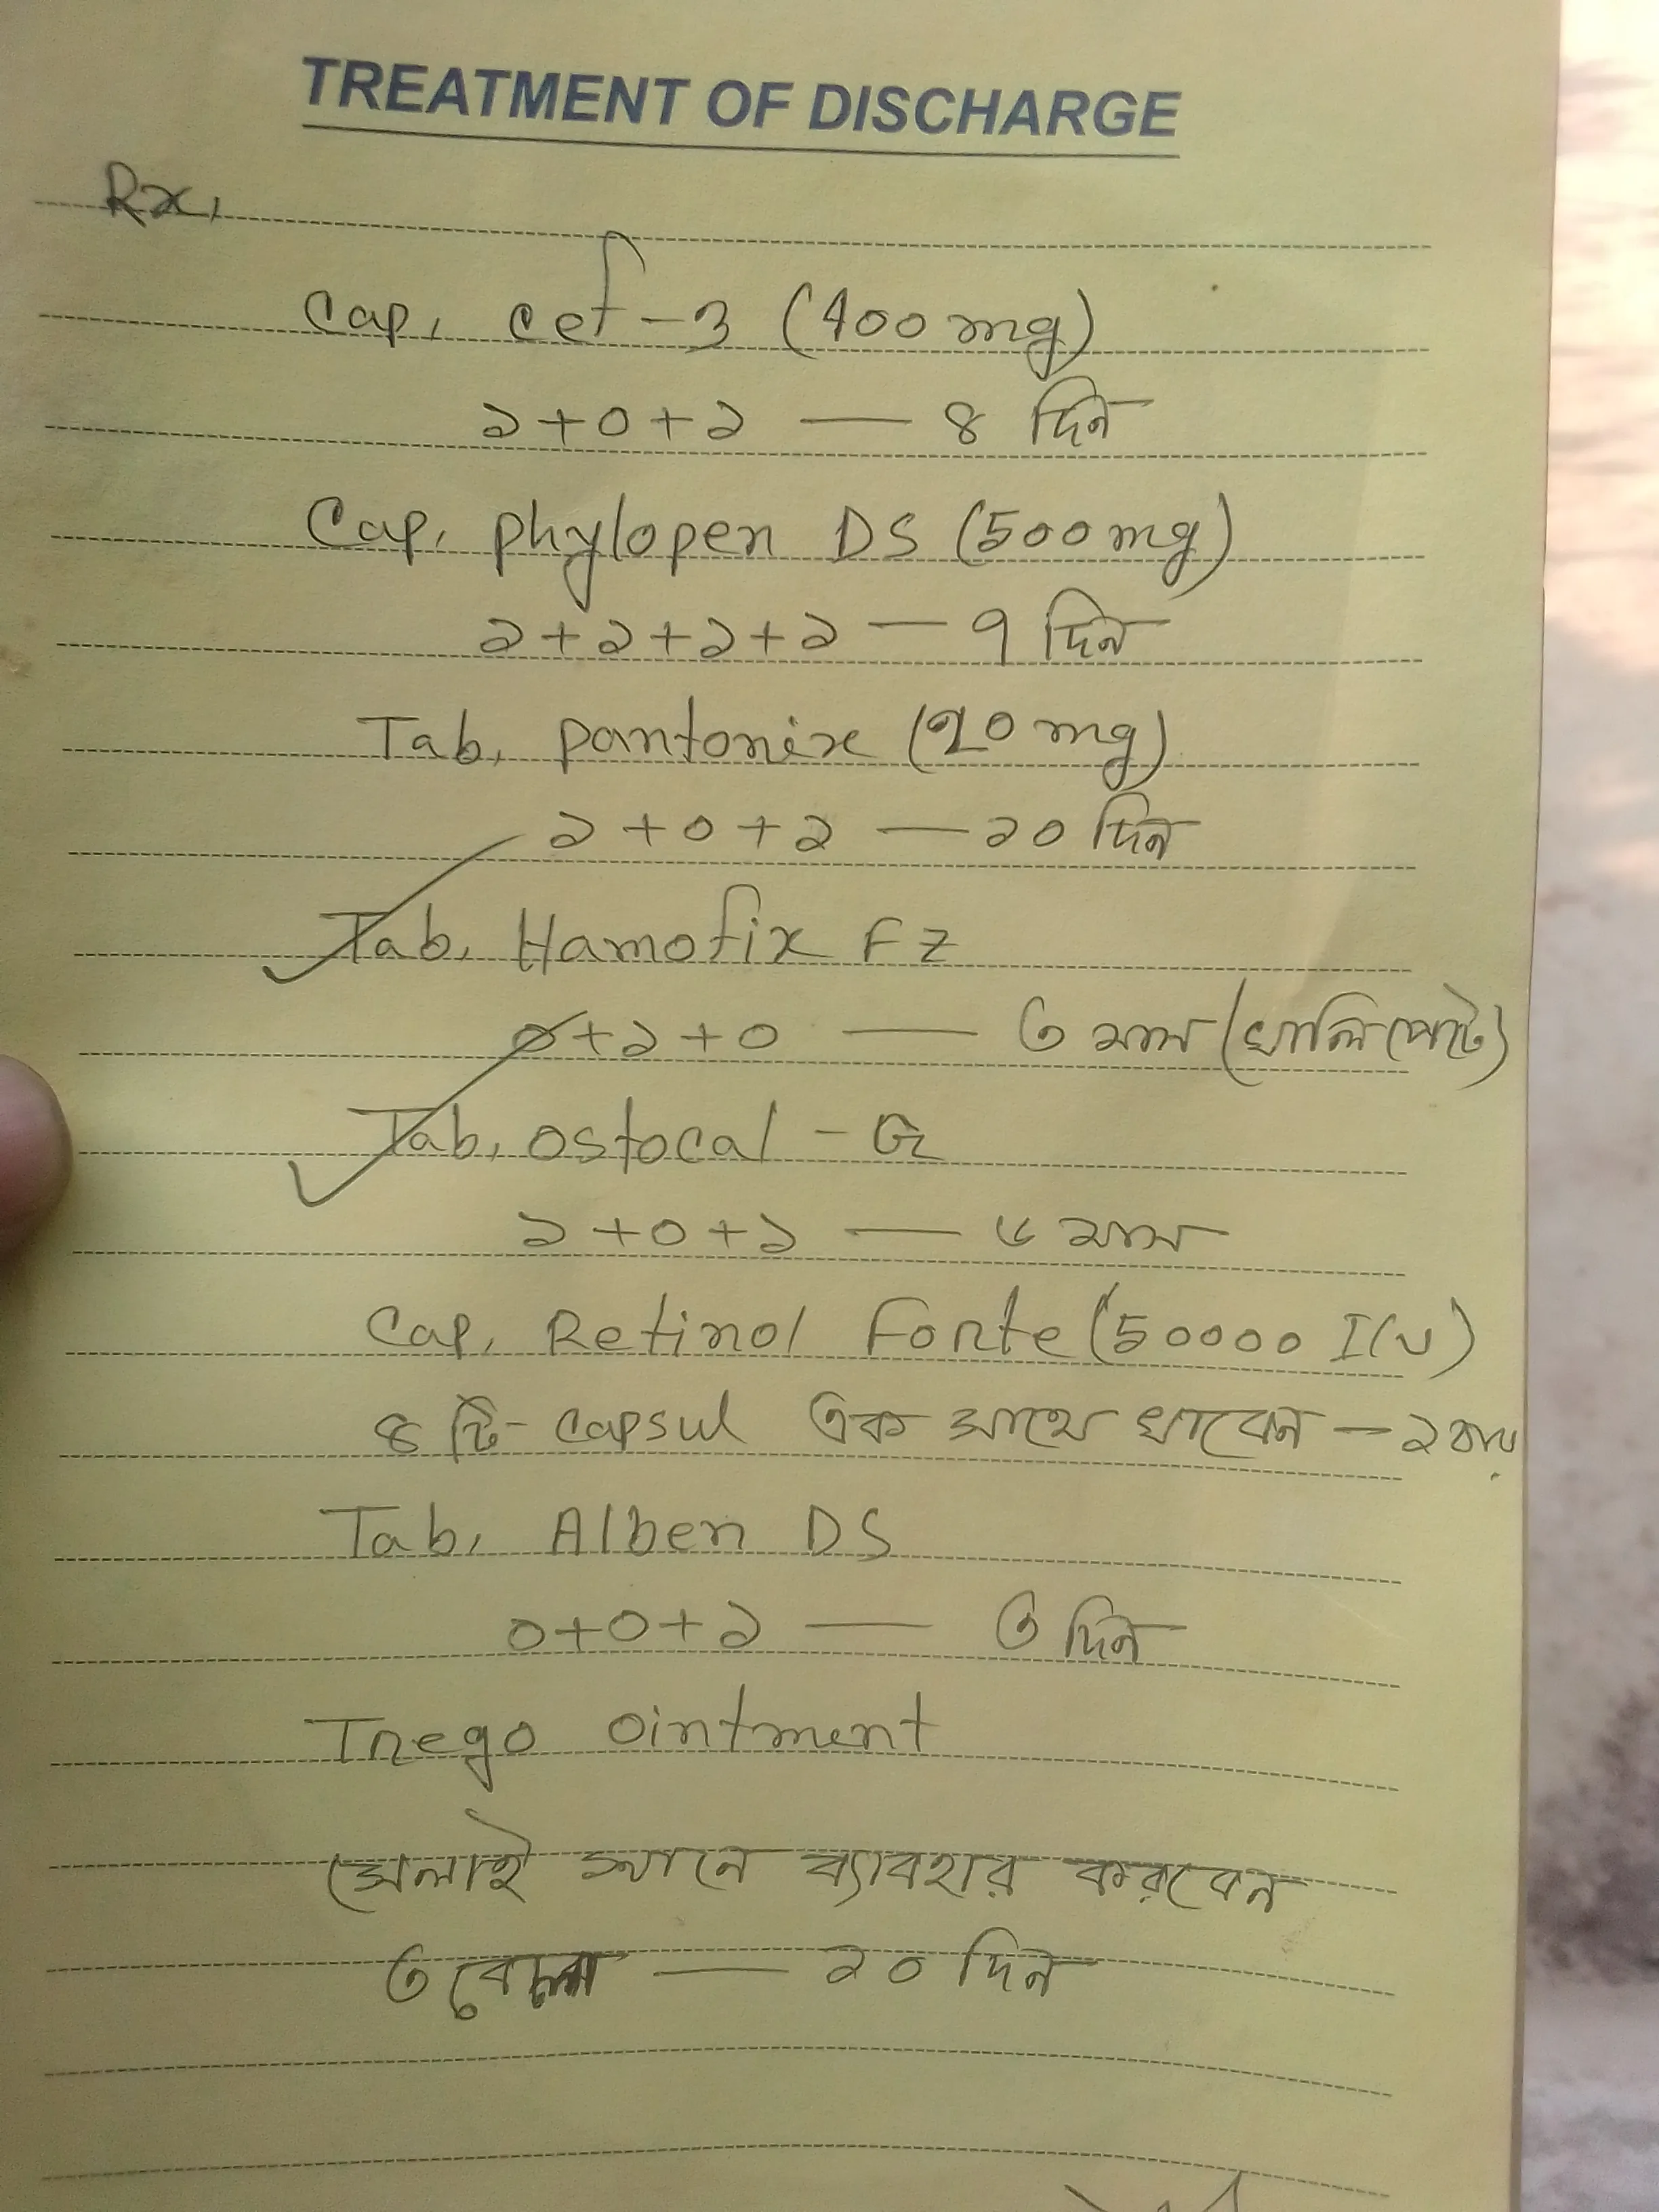 TREATMENT OF DISCHARGE
Rx,
Cap, cef-3 (400mg)
১+০+১ — ৪ দিন
Cap, phylopen DS (500mg)
১+১+১+১ — ৭ দিন
Tab, pantonix (20mg)
১+০+১ — ১০ দিন
Tab, Hamofix FZ
০+১+০ — ৩ মাস (খালি পেটে)
Tab, ostocal - G
১+০+১ — ৬ মাস
Cap, Retinol Forte (50000 IU)
৪ টি capsul এক সাথে খাবেন — ১বার
Tab, Alben DS
০+০+১ — ৩ দিন
Trego ointment
সেলাই স্থানে ব্যাবহার করবেন
৩ বেলা — ১০ দিন